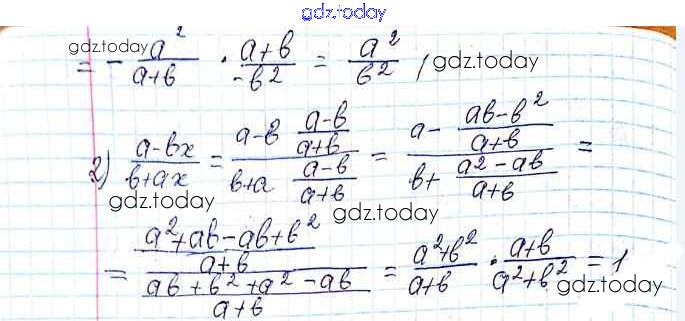 gdz.today
gdz.today
= - a²/(a+b) · (a+b)/(-b²) = a²/b² , gdz.today
2) (a-bx)/(b+ax) = (a-b (a-b)/(a+b))/(b+a (a-b)/(a+b)) = (a - (ab-b²)/(a+b))/(b+ (a²-ab)/(a+b)) =
gdz.today
gdz.today
= ((a²+ab-ab+b²)/(a+b))/((ab+b²+a²-ab)/(a+b)) = (a²+b²)/(a+b) · (a+b)/(a²+b²) = 1
gdz.today